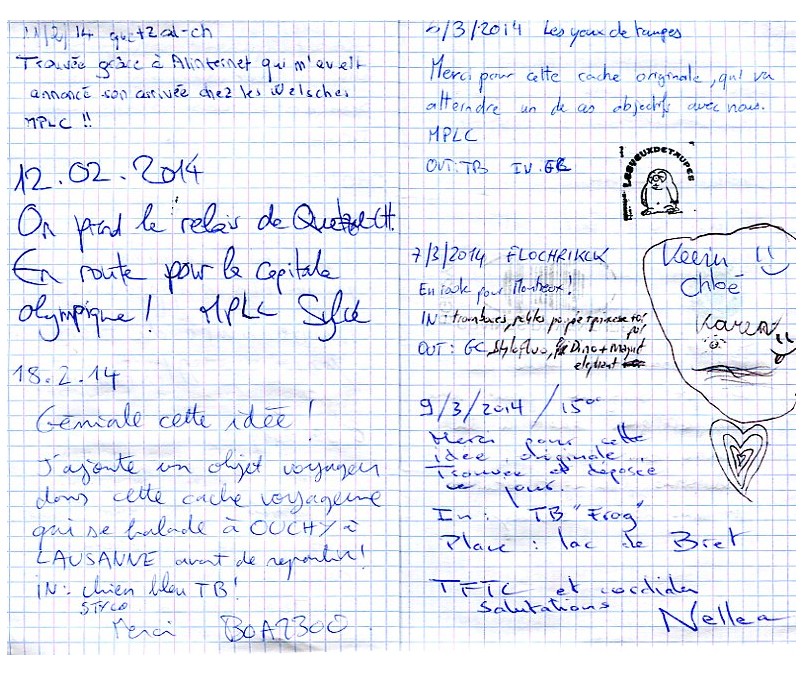 11/2/14 quetzal-ch
Trouvée grâce à Alinternet qui m'avait
annoncé son arrivée chez les Welsches
MPLC !!
12.02.2014
On prend le relais de Quetzal-CH.
En route pour la capitale
olympique ! MPLC
18.2.14
Géniale cette idée !
J'ajoute un objet voyageur
dans cette cache voyageuse
qui se balade à OUCHY à
LAUSANNE avant de repartir !
IN : chien bleu TB !
STYLO
Merci BOA2300
/3/2014 Les yeux de taupes
Merci pour cette cache originale, qui va
atteindre un de ces objectifs avec nous.
MPLC
OUT: TB IN: GC
LESYEUXDETAUPES
7/3/2014 FLOCHRIKCK
En route pour Montreux !
IN : trombones, petites
OUT : GC, Stylo fluo, Dino + Magnet
elephant
Kevin
Chloé
Karen
9/3/2014 / 15°°
Merci pour cette
idée originale..
Trouvée et déposée
ce jour.
In : TB "Frog"
Place : lac de Bret
TFTC et cordiales
salutations
Nellea